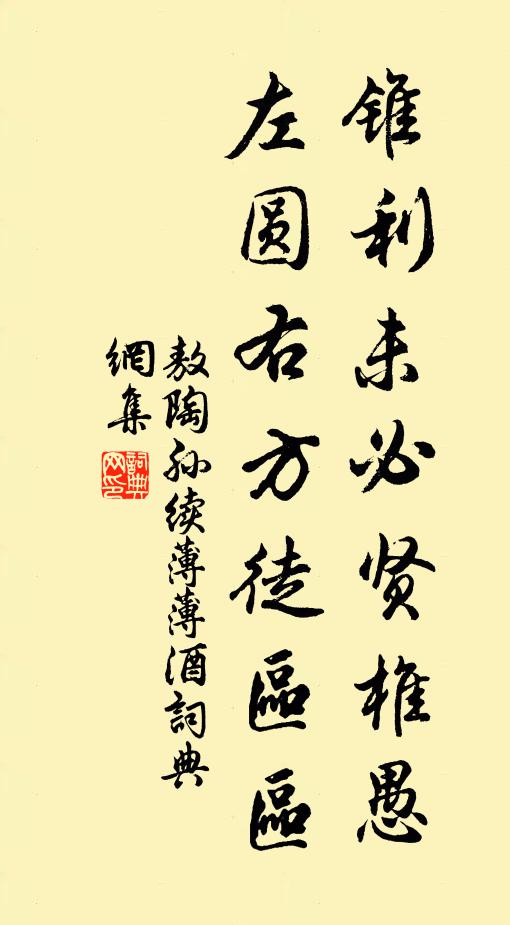 錐利未必贤椎愚
左圆右方徒區區
敖陶孙续薄薄酒詞典
網集
詞典
网印